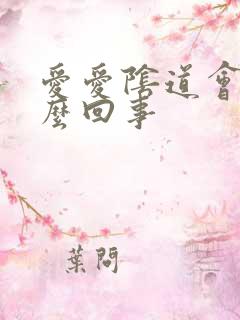 愛愛陰道會
麼回事
葉問